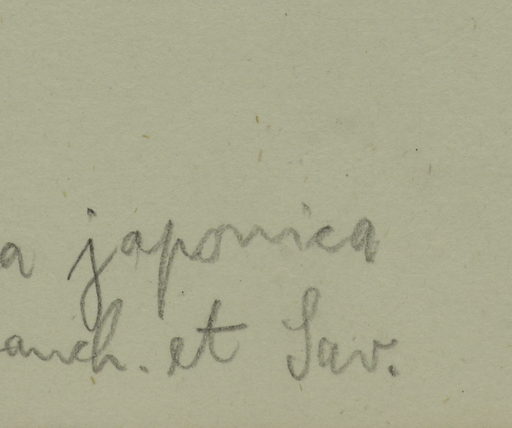 a japonica
anch. et Sav.